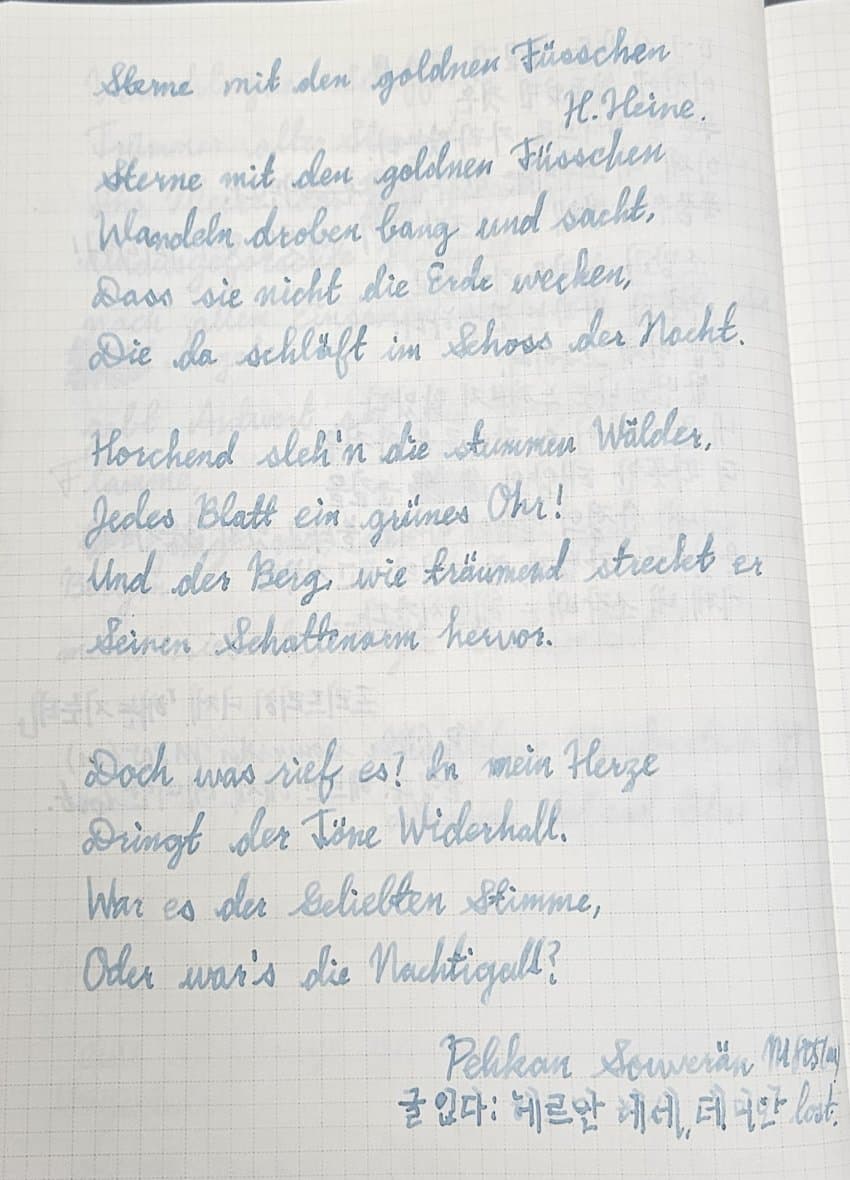 Sterne mit den goldnen Füsschen
H. Heine.
Sterne mit den goldnen Füsschen
Wandeln droben bang und sacht,
Dass sie nicht die Erde wecken,
Die da schläft im Schoss der Nacht.
Horchend steh'n die stummen Wälder,
Jedes Blatt ein grünes Ohr!
Und der Berg, wie träumend streckt er
Seinen Schattenarm hervor.
Doch was rief es? In mein Herze
Dringt der Töne Widerhall.
War es der Geliebten Stimme,
Oder war's die Nachtigall?
Pelikan Souverän
글입다: 헤르만 헤세, 데미안 lost.